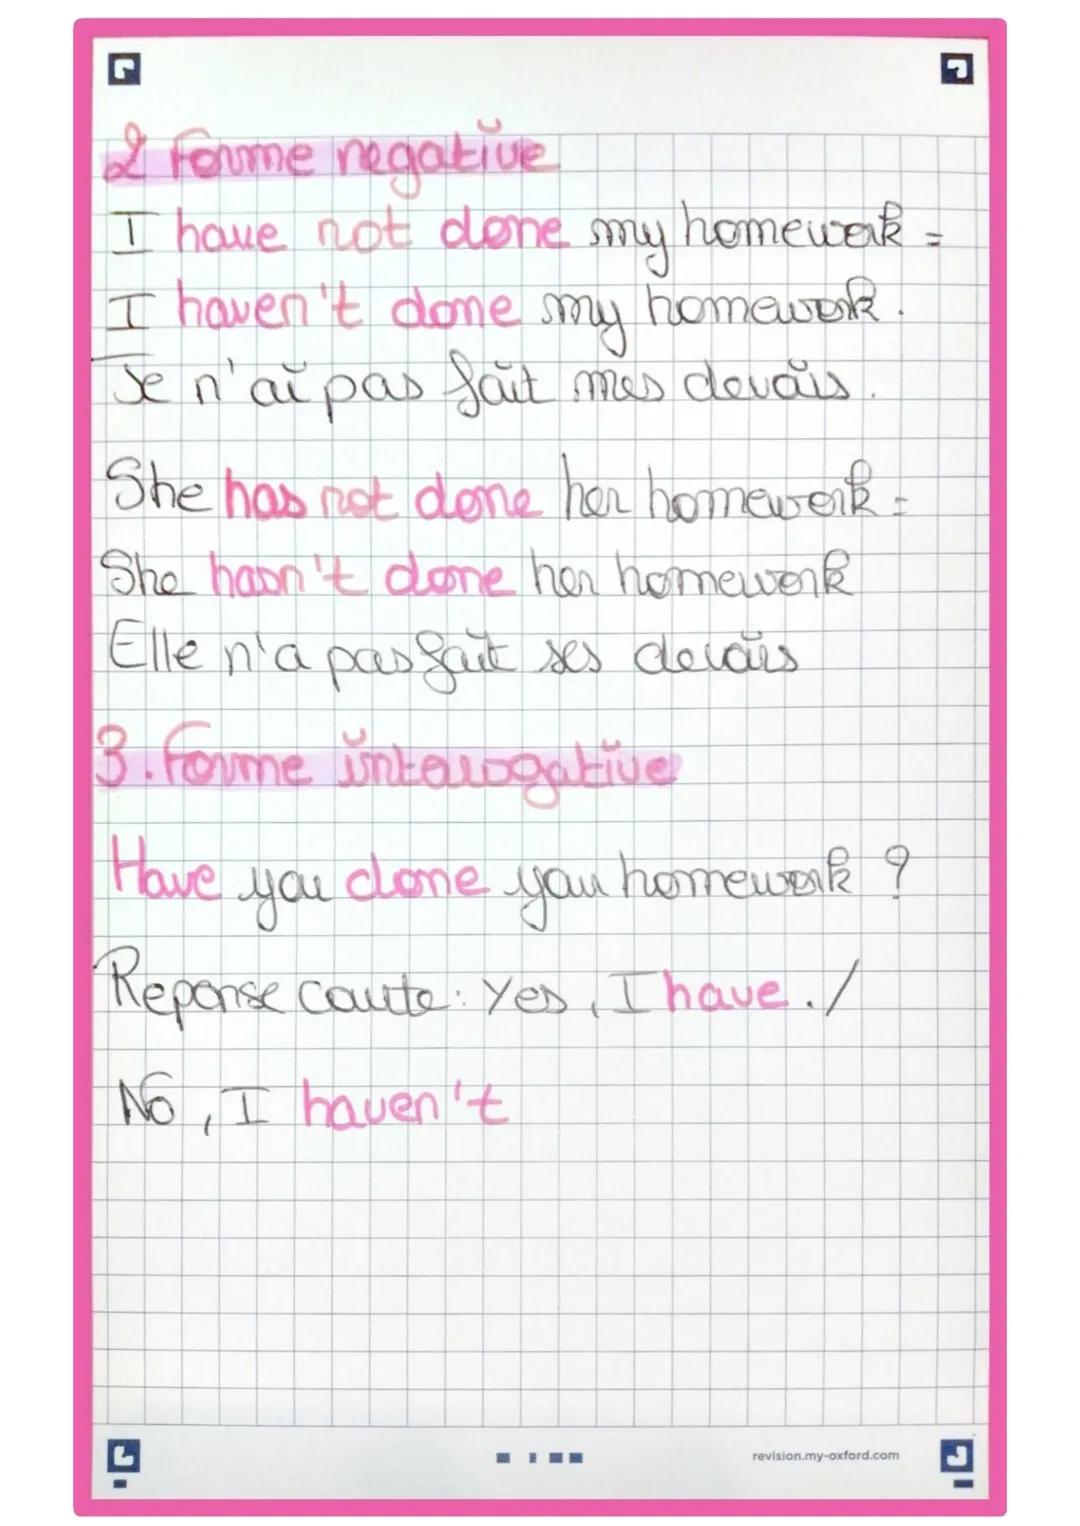 2 Forme negative
I have not done my homework =
I haven't done my homework.
Je n'ai pas fait mes devois.
She has not done her homework =
She hasn't done her homework
Elle n'a pas fait ses devois
3. Forme interrogative
Have you done your homework ?
Reponse courte : Yes, I have. /
No, I haven't
revision.my-oxford.com